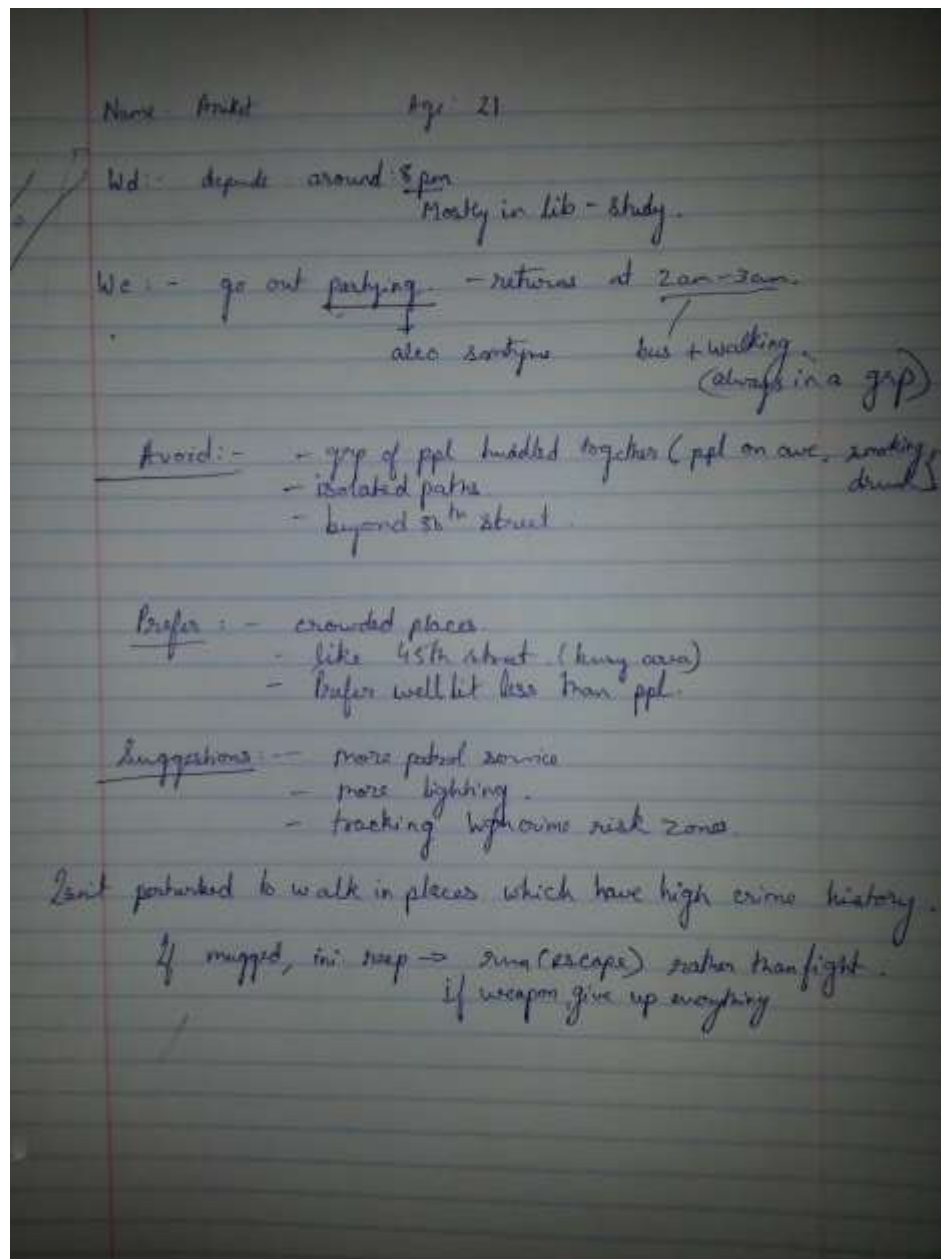 Name - Aniket Age: 21
Wd :- depends around 8pm
Mostly in lib - study.
We :- go out partying - returns at 2am-3am.
also bus + walking
(always in a grp)
Avoid :- - grp of ppl huddled together (ppl on ave, smoking,
drunk)
- isolated paths
- beyond street.
Prefer : - crowded places.
- like 45th street (busy area)
- Prefer well lit less than ppl.
Suggestions :- - more patrol service
- more lighting.
- tracking high crime risk zones.
Isn't perturbed to walk in places which have high crime history.
If mugged, ini resp → run (escape) rather than fight.
if weapon give up everything